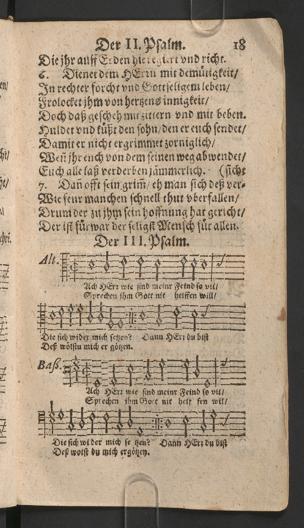 Der II. Psalm. 18
Die jhr auff Erden hie regiert vnd richt.
6. Dienet dem HErrn mit demütigkeit/
In rechter forcht vnd Gottseligem leben/
Frolocket jhm von hertzens innigkeit/
Doch daß gescheh mit zittern vnd mit beben.
Huldet vnd küßt den sohn/ den er euch sendet/
Damit er nicht ergrimmet zorniglich/
Weñ jhr euch von dem seinen weg abwendet/
Euch alle laß verderben jämmerlich. (sicht
7. Dañ offt sein griṁ/ eh man sich deß ver-
Wie fewr manchen schnell thut vberfallen/
Drum der zu jhm sein hoffnung hat gericht/
Der ist fürwar der seligst Mensch für allen.
Der III. Psalm.
Alt.
Ach HErr wie sind meine Feind so vil/
Sprechen jhm Gott nit helffen will/
Die sich wider mich setzen? Dann HErr du bist
Deß wöllstu mich ergötzen.
Baß.
Ach HErr wie sind meiner Feind so vil/
Sprechen jhm Gott nit helffen wil/
Die sich wider mich setzen? Dann HErr du bist
Deß wolst du mich ergötzen.